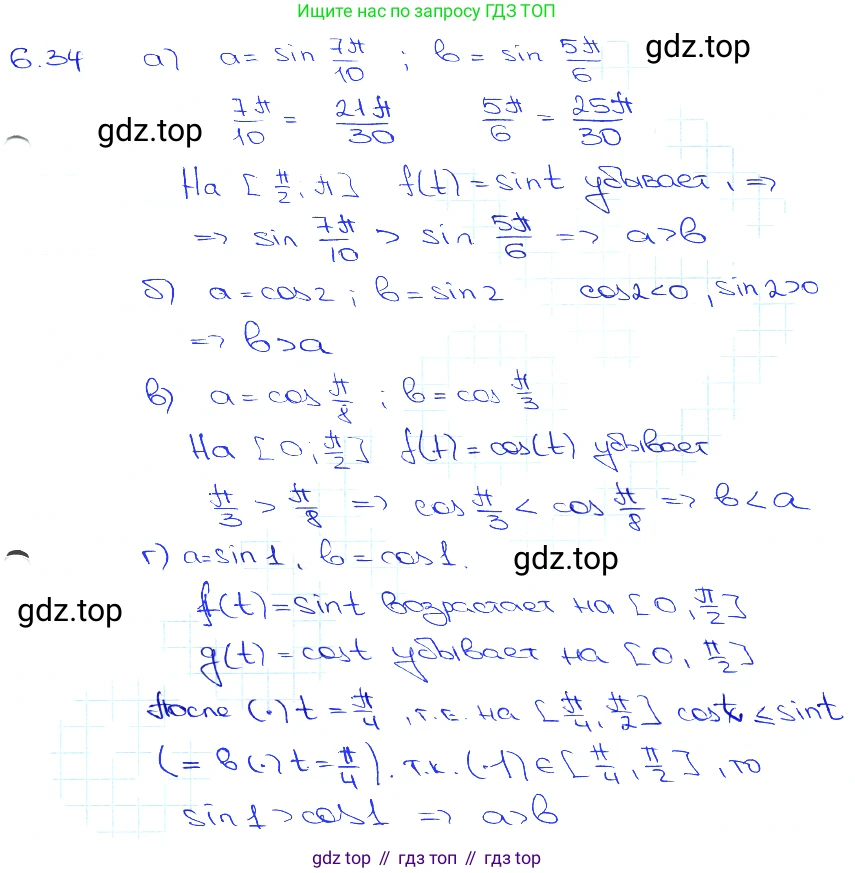 Ищите нас по запросу ГДЗ ТОП
6.34 а) a = sin 7π/10 ; b = sin 5π/6 gdz.top
gdz.top 7π/10 = 21π/30 5π/6 = 25π/30
На [π/2, π] f(t) = sint убывает, =>
=> sin 7π/10 > sin 5π/6 => a>b
б) a = cos2 ; b = sin2 cos2<0, sin2>0
=> b>a
в) a = cos π/8 ; b = cos π/3
На [0; π/2] f(t) = cos(t) убывает
π/3 > π/8 => cos π/3 < cos π/8 => b<a
г) a=sin1, b=cos1. gdz.top
gdz.top f(t)=sint возрастает на [0, π/2]
g(t) = cost убывает на [0, π/2]
После (·) t = π/4, т.е. на [π/4, π/2] cost ≤ sint
(= в (·) t = π/4). т.к. (·1) ∈ [π/4, π/2], то
sin1 > cos1 => a>b
gdz top // гдз топ // gdz top